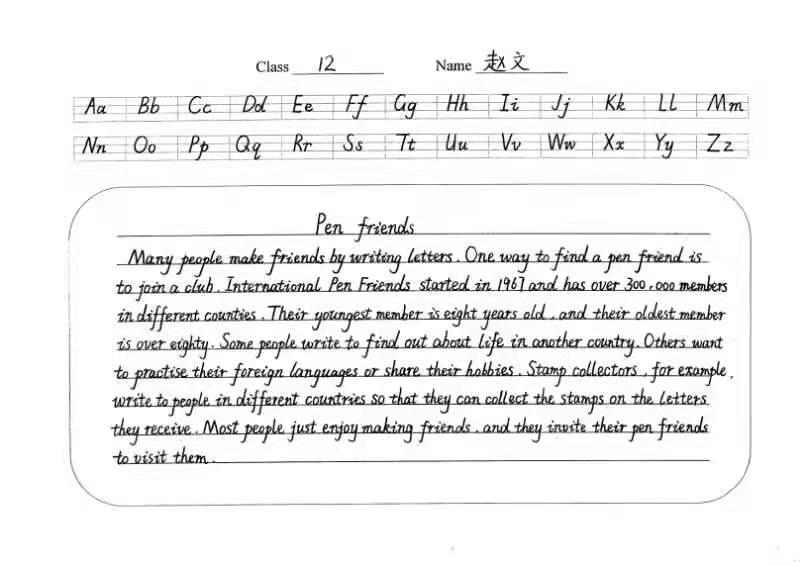 Class 12 Name 赵文
Aa Bb Cc Dd Ee Ff Gg Hh Ii Jj Kk Ll Mm
Nn Oo Pp Qq Rr Ss Tt Uu Vv Ww Xx Yy Zz
Pen friends
Many people make friends by writing letters. One way to find a pen friend is
to join a club. International Pen Friends started in 1967 and has over 300,000 members
in different counties. Their youngest member is eight years old, and their oldest member
is over eighty. Some people write to find out about life in another country. Others want
to practise their foreign languages or share their hobbies. Stamp collectors, for example,
write to people in different countries so that they can collect the stamps on the letters
they receive. Most people just enjoy making friends, and they invite their pen friends
to visit them.